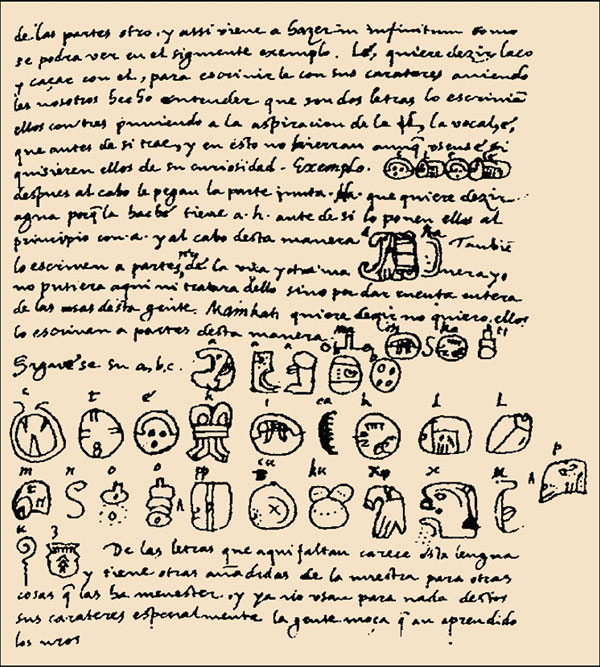 de las partes otro, y assi viene a hazer in infinitum como
se podra ver en el siguiente exemplo. Lé, quiere dezir laço
y caçar con el, para escrivirle con sus carateres aviendo
les nosotros hecho entender que son dos letras lo escrivian
ellos con tres puniendo a la aspiracion de la l, la vocal, é,
que antes de si trae, y en esto no hierran aunq̃ si
quisieren ellos de su curiosidad. Exemplo.
despues al cabo le pegan la parte junta. Ha. que quiere dezir
agua porq̃ la haché tiene a. h. ante de si lo ponen ellos al
principio con a. y al cabo desta manera Tambiẽ
lo escriven a partes, pero de la una y otra ma nera yo
no pusiera aqui ni tratara dello sino por dar cuenta entera
de las cosas desta gente. Mainkati quiere dezir no quiero, ellos
lo escriven a partes desta manera. ma i n ka ti
Siguese su a, b, c. a a a b b
c t é h i ca k l l
m n o o pp cu ku x x u p
u z De las letras que aqui faltan carece esta lengua
y tiene otras añadidas de la nuestra para otras
cosas q̃ las ha menester, y ya no usan para nada destos
sus carateres especialmente la gente moça q̃ an aprendido
los nros